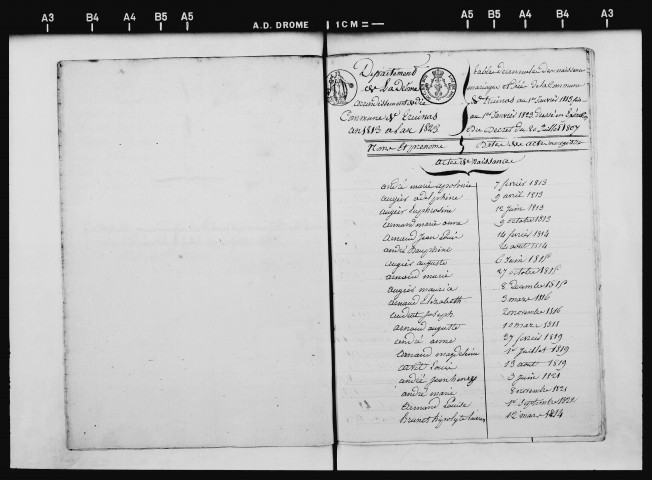 A3 B4 A4 B5 A5 A.D. DROME 1 CM A5 B5 A4 B4 A3
Département
de la Drôme
arrondissement de die
Commune de
an 1813 a l'an 1823
Noms et prenoms
table décennale des naissances
mariages et décès de la Commune
de au 1er janvier 1813
au 1er janvier 1823 dressé en
du Decret du 20 Juillet 1807
Dates des actes
actes de naissance
andré marie apolonie 7 fevrier 1813
augier delphine 9 avril 1813
augier euphrosine 12 juin 1813
armand marie anne 9 octobre 1813
arnaud Jean Louis 14 fevrier 1814
andré Dauphine 4 aout 1814
augier auguste 6 juin 1815
arnaud marie 27 octobre 1815
augier maurice 8 decembre 1815
arnaud Elizabeth 3 mars 1816
audut Joseph 2 novembre 1816
arnaud auguste 10 mars 1818
andré anne 27 fevrier 1819
armand magdeleine 1er Juillet 1819
Louis 13 aout 1819
andré jean henry 3 juin 1821
andré marie 8 novembre 1821
armand Louise 1er Septembre 1822
Brunet hipolyte 12 mars 1814